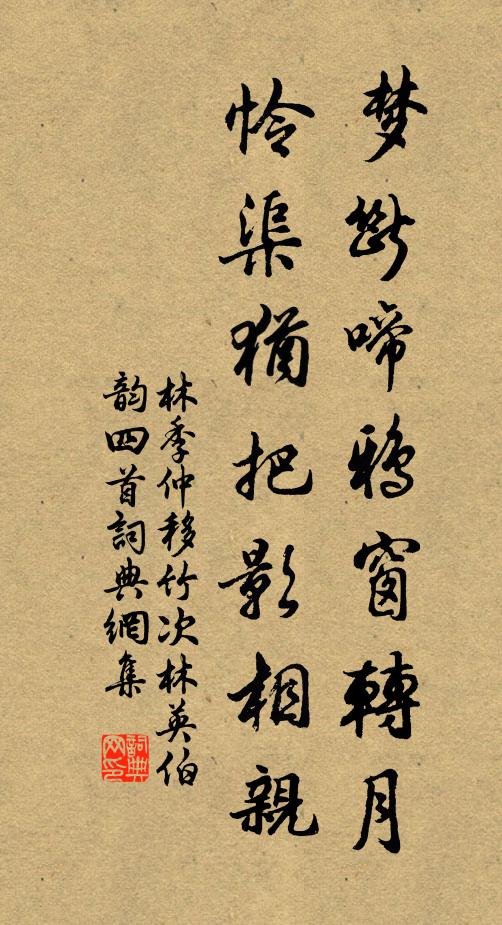 梦断啼鸦窗转月
怜渠犹把影相亲
林季仲移竹次林英伯
韵四首词典网集
詞典
网印